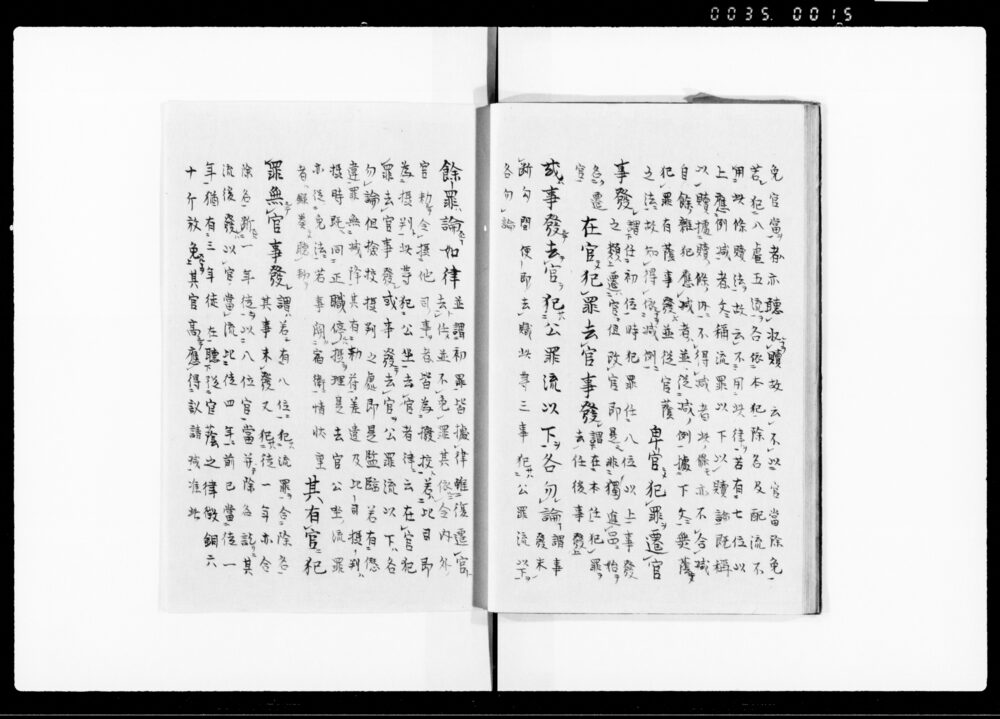 0035. 0015
免官當者亦聽收贖故云不以官當除免
若犯八虐五流各依本犯除名及配流不
用此條贖法故云不用此律若有七位以
上應例減者文稱流罪以下以贖論既稱
以贖據贖條內不得減者此條亦不合減
自餘雜犯應減者並從減例據下文無蔭
犯罪有蔭事發並從官蔭
之法故知得依減例
卑官犯罪遷官
事發謂任初位時犯罪任八位以上事發
之類遷官但改官即是非獨進品始
名遷
官
在官犯罪去官事發謂在本任犯罪
去任後事發
或事發去官犯公罪流以下各勿論謂事
發未
斷勾問便即去職此等三事犯公罪流以下
各勿論
餘罪論如律並謂初罪皆據律雖復遷官
去任並不免罪其依令內外
官勅令攝他司事者皆為檢校若比司即
為攝判此等犯公坐去官者律云在官犯
罪去官事發或事發去官公罪流以下各
勿論但檢校攝判之處即是監臨若有愆
違罪無減降其有勅符差遣及比司攝判
攝時既同正職停攝理是去官公坐流罪
亦從免法若事關宿衛情狀重
者
其有官犯
罪無官事發謂若有八位犯流罪合除名
其事未發又犯徒一年亦合
除名斷一年徒以八位官當并除名訖其
流後發以官當流比徒四年前已當徒一
年猶有三年徒在聽從官蔭之律徵銅六
十斤放免其官高應得議請減准此